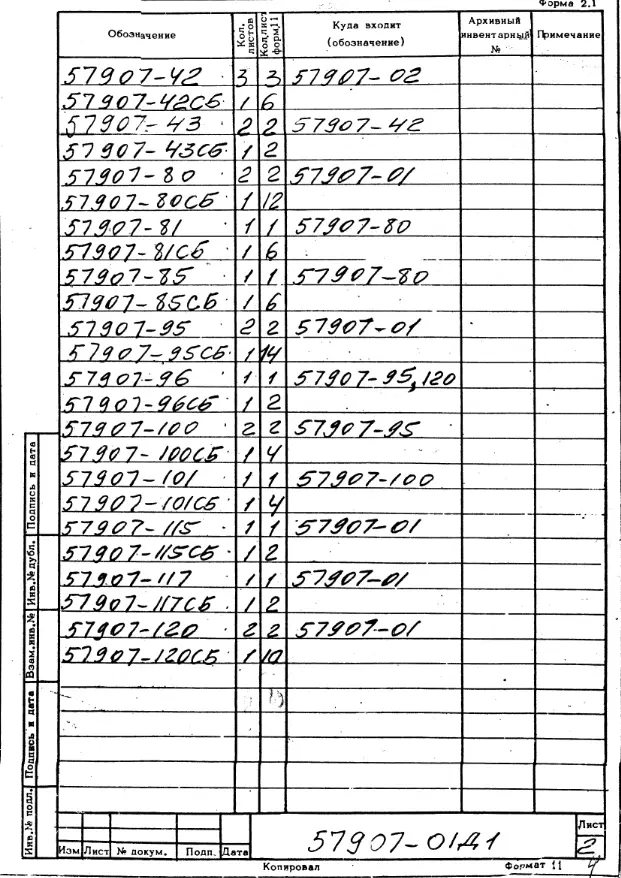 Форма 2.1
Обозначение Кол. листов Кол. лист форм. 11 Куда входит (обозначение) Архивный инвентарный № Примечание
57907-42 3 3 57907-02
57907-42СБ 1 6
57907-43 2 2 57907-42
57907-43СБ 1 2
57907-80 2 2 57907-01
57907-80СБ 1 12
57907-81 1 1 57907-80
57907-81СБ 1 6
57907-85 1 1 57907-80
57907-85СБ 1 6
57907-95 2 2 57907-01
57907-95СБ 1 14
57907-96 1 1 57907-95,120
57907-96СБ 1 2
57907-100 2 2 57907-95
57907-100СБ 1 4
57907-101 1 1 57907-100
57907-101СБ 1 4
57907-115 1 1 57907-01
57907-115СБ 1 2
57907-117 1 1 57907-01
57907-117СБ 1 2
57907-120 2 2 57907-01
57907-120СБ 1 10
Подпись и дата
Инв.№ дубл.
Взам.инв.№
Подпись и дата
Инв.№ подл.
Изм Лист № докум. Подп. Дата
57907-01Д1
Лист
2
Копировал Формат 11
4